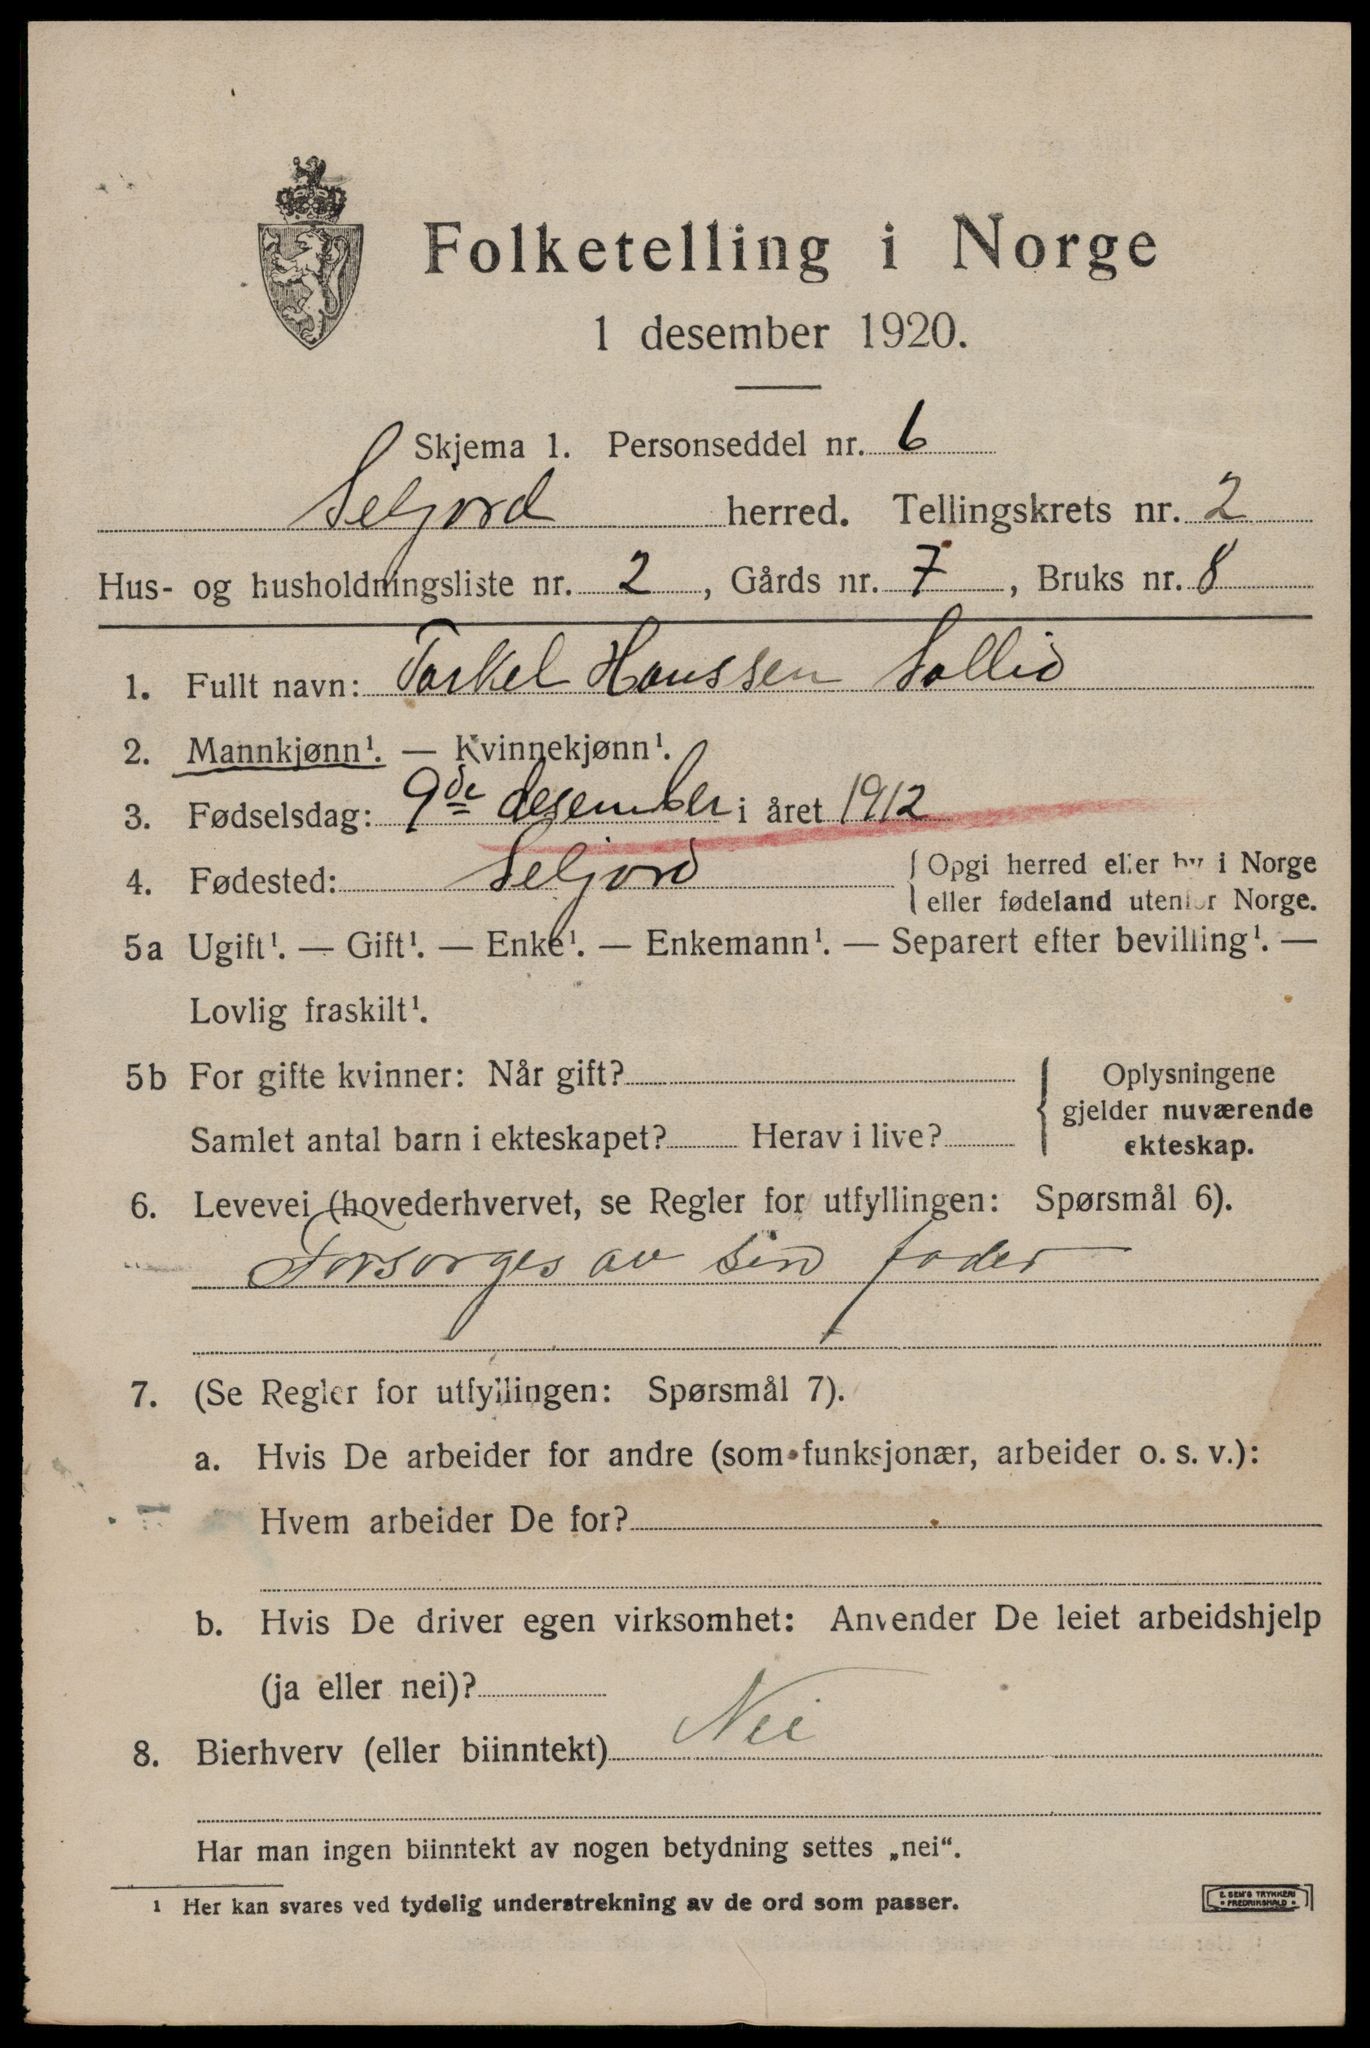 Folketelling i Norge
1 desember 1920.
Skjema 1. Personseddel nr. 6
Seljord herred. Tellingskrets nr. 2
Hus- og husholdningsliste nr. 2, Gårds nr. 7, Bruks nr. 8
1. Fullt navn: Torkel Hanssen Sollid
2. Mannkjønn¹. — Kvinnekjønn¹.
3. Fødselsdag: 9de desember i året 1912
4. Fødested: Seljord { Opgi herred eller by i Norge
eller fødeland utenfor Norge.
5a Ugift¹. — Gift¹. — Enke¹. — Enkemann¹. — Separert efter bevilling¹. —
Lovlig fraskilt¹.
5b For gifte kvinner: Når gift? { Oplysningene
gjelder nuværende
Samlet antal barn i ekteskapet? Herav i live? ekteskap.
6. Levevei (hovederhvervet, se Regler for utfyllingen: Spørsmål 6).
Forsorges av sin fader
7. (Se Regler for utfyllingen: Spørsmål 7).
a. Hvis De arbeider for andre (som funksjonær, arbeider o. s. v.):
Hvem arbeider De for?
b. Hvis De driver egen virksomhet: Anvender De leiet arbeidshjelp
(ja eller nei)?
8. Bierhverv (eller biinntekt) Nei
Har man ingen biinntekt av nogen betydning settes „nei“.
1 Her kan svares ved tydelig understrekning av de ord som passer.
E. SEM'S TRYKKERI
FREDRIKSHALD